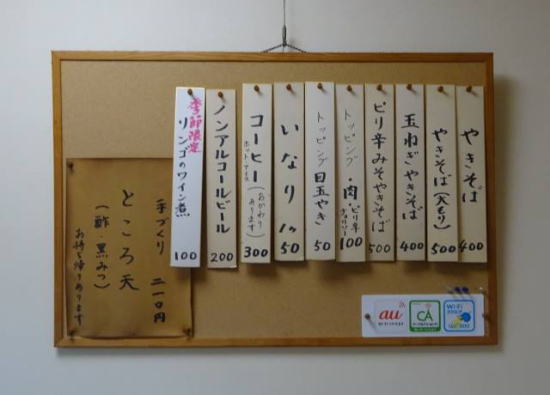 やきそば 400
やきそば(大もり) 500
玉ねぎやきそば 400
ピリ辛みそやきそば 500
トッピング・肉・ピリ辛 100
トッピング 目玉やき 50
いなり 1ケ 50
コーヒー(おかわりあります) 300
ホット アイス
ノンアルコールビール 200
季節限定
リンゴのワイン煮 100
手づくり 二一〇円
ところ天
(酢・黒みつ)
お持ち帰りあります
au
CA
Wi-Fi